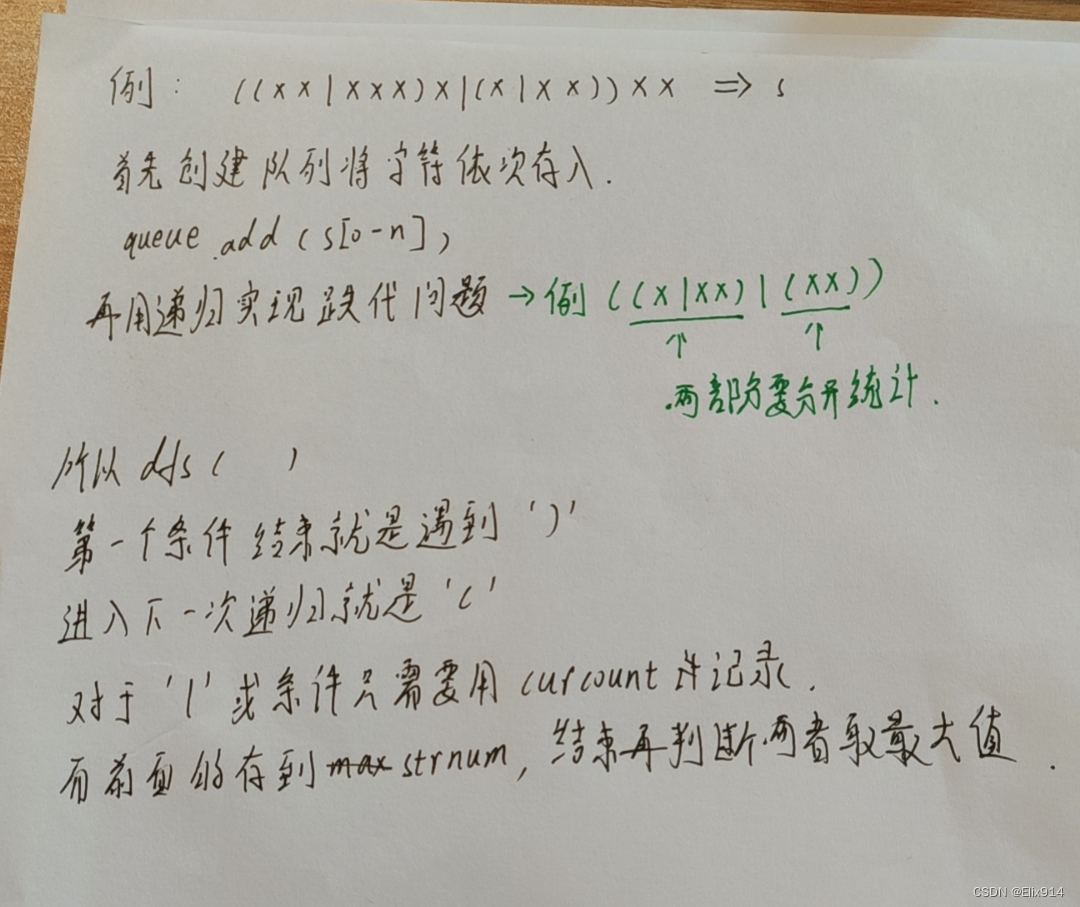 例: ((xx|xxx)x|(x|xx))xx => s
首先创建队列将字符依次存入.
queue.add(s[0-n],
再用递归实现跌代问题 →例 ((x|xx)|(xx))
↑ ↑
两部分要分开统计.
所以 dfs( )
第一个条件结束就是遇到 ')'
进入下一次递归就是 '('
对于 '|' 或条件只需要用 curcount 来记录.
而前面的存到 max strnum, 结束再判断两者取最大值.
CSDN @Elix914